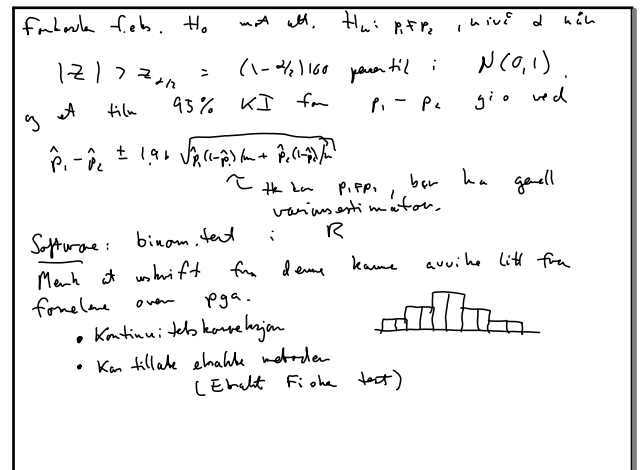 Forkaste f.eks. H₀ mot alt. Hₐ: p₁≠p₂, nivå α når
|Z| > z_{α/2} = (1-α/2)100 persentil i N(0,1).
og et tiln 95% KI for p₁ - p₂ gis ved
p̂₁ - p̂₂ ± 1.96 √(p̂₁(1-p̂₁)/m + p̂₂(1-p̂₂)/n)
p₁≠p₂, bør ha genell
variansestimator.
Software: binom.test i R
Merk at utskrift fra denne kanne avvike litt fra
formlene over pga.
• Kontinuitetskorreksjon
• Kan tillate eksakte metoder
(Eksakt Fisher test)